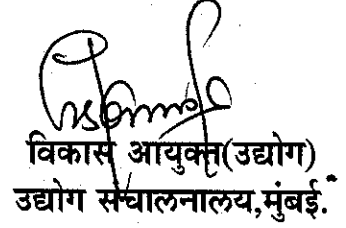 विकास आयुक्त(उद्योग)
उद्योग संचालनालय,मुंबई.